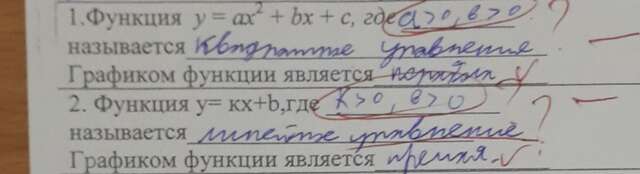 1.Функция y = ax² + bx + c, где a>0, в>0 ?
называется квадратные уравнение —
Графиком функции является парабола ✓
2. Функция y= кx+b,где к>0, в>0 ? —
называется линейные уравнение
Графиком функции является прямая ✓